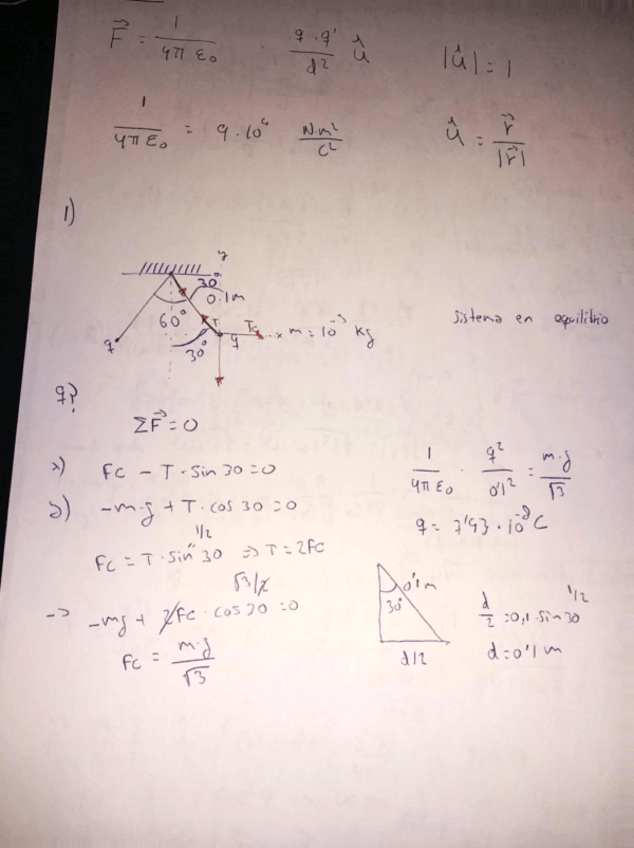 F⃗ = 1/(4π ε₀) · (q · q')/d² û    |û| = 1
1/(4π ε₀) = 9 · 10⁹ N·m²/C²    û = r⃗/|r⃗|
1)
y
30°
0'1m
60°
T
Fc
x
m = 10⁻³ kg
q
q
30°
Sistema en equilibrio
q?
ΣF⃗ = 0
x) Fc - T · sin 30 = 0
y) -m·g + T · cos 30 = 0
1/2
Fc = T · sin 30 => T = 2Fc
√3/2
-> -mg + 2Fc · cos 30 = 0
Fc = m·g/√3
1/(4π ε₀) · q²/0'1² = m·g/√3
q = 7'93 · 10⁻⁸ C
30°
0'1m
d/2
1/2
d/2 = 0,1 · sin 30
d = 0'1 m